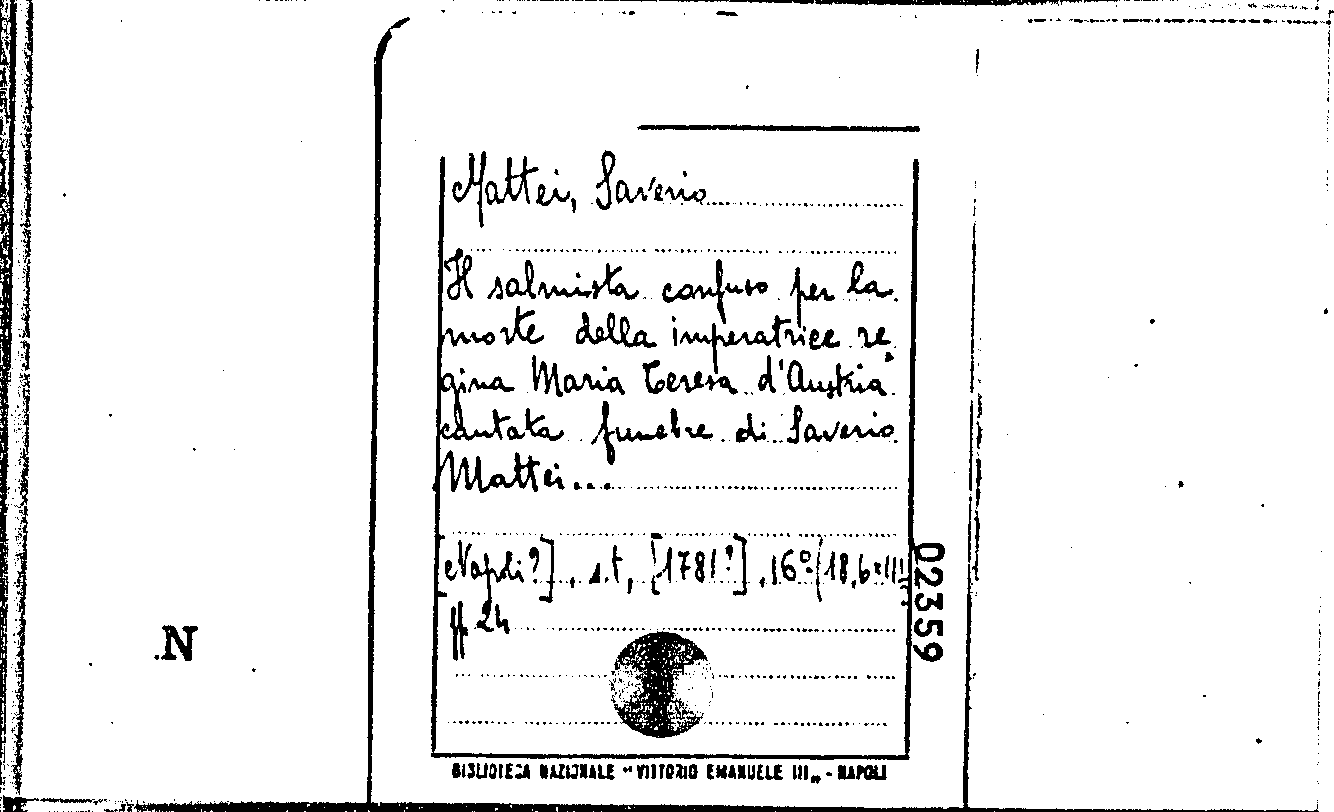 Mattei, Saverio
Il salmista confuso per la
morte della imperatrice re
gina Maria Teresa d'Austria
cantata funebre di Saverio
Mattei...
[Napoli?], s.t, [1781?], 16º (18,6x11)
ff. 24
02359
N
BIBLIOTECA NAZIONALE "VITTORIO EMANUELE III„ - NAPOLI